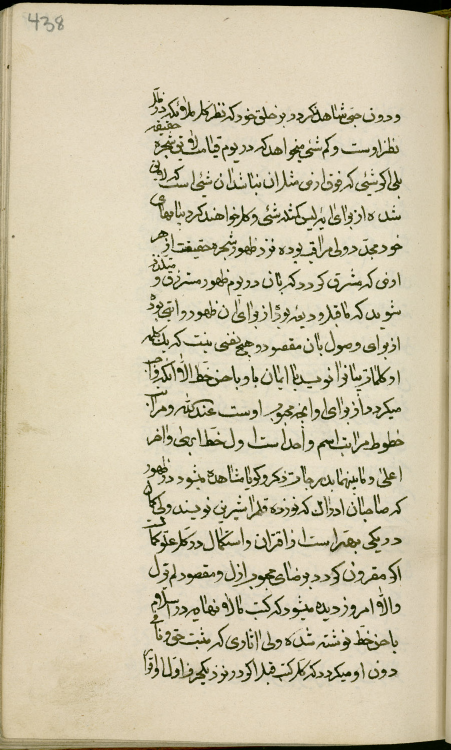 438
و دون حق شاهد نگردد بر خلق خود که نظر کل
نظر اوست و کم شیئ میخواهد که در یوم قیامت
بلی اگر شیئی که فوق ارض مثل ان نباشد ان شیئ است که
شده از برای لیس کمثله شیئ و کل خواهند کرد بنامهای
خود مجدد ولی مراقب بوده نزد ظهور شجره حقیقت از هر
ارض که مشرق گردد که بان در یوم ظهور متلذذ و
شوید که ماقبل و دیعه بوده از برای ان ظهور و
از برای وصول بان مقصود و هیچ نفسی نیست که یک کلمه
او کلمات بیان را نویسد با ایمان باو باحسن خط الا انکه
میگردد از برای او انچه محبوب اوست عند الله و مراتب
خطوط مراتب اسم واحد است اول خط ابهی و اخر
اعلی و مابینهما بدرجات ذکر و کونا مشاهده میشود در ظهور
که صاحبان ادراک که نوزده قلم را شیرین نویسند ولی کمال
در یکی بهتر است از اقران و استکمال در کل علو کمال است
اگر مقرون گردد برضای محبوب ازل و مقصود لم یزل
والا امروز دیده میشود که کتب لا نهایه در اسلام
باحسن خط نوشته شده ولی اثاری که مثبت حق و نافی
دون او میگردد که کل کتب قبل اگر در نزد یکحرف اول